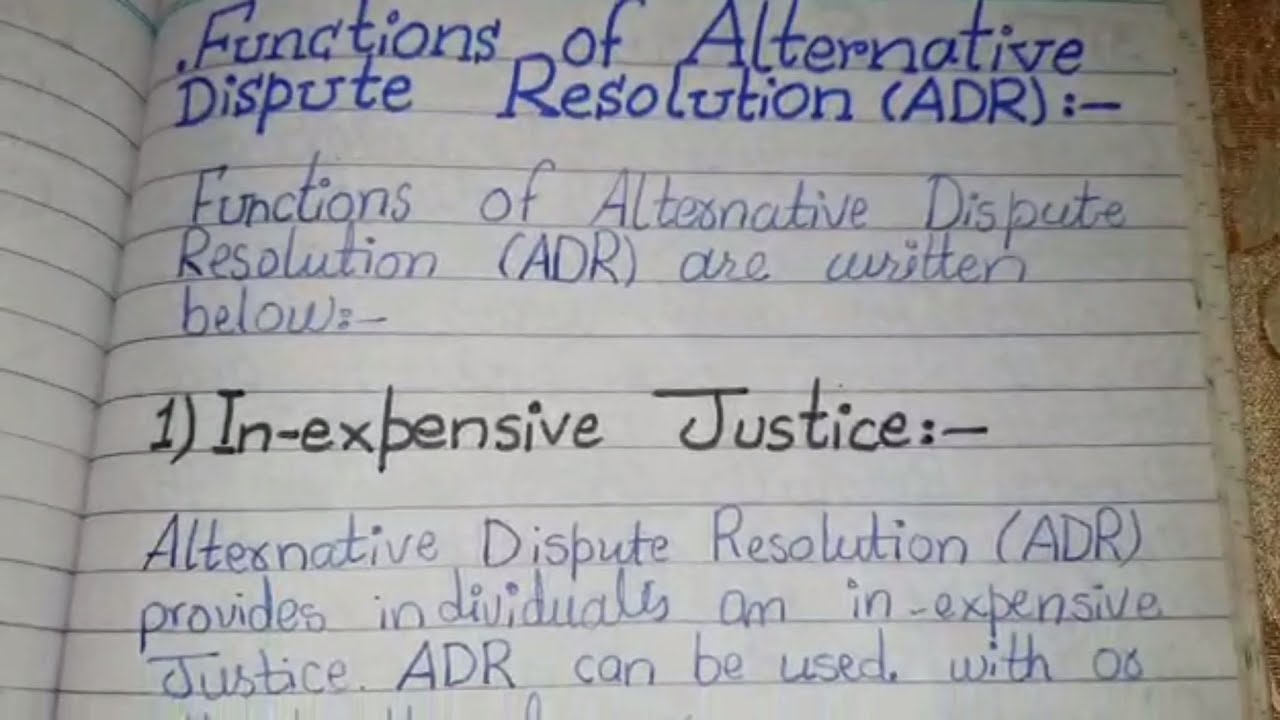 .Functions of Alternative
Dispute Resolution (ADR):-
Functions of Alternative Dispute
Resolution (ADR) are written
below:-
1) In-expensive Justice:-
Alternative Dispute Resolution (ADR)
provides individuals an in-expensive
Justice. ADR can be used. with or